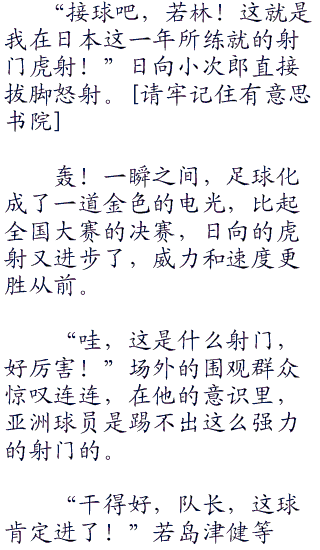 “接球吧，若林！这就是
我在日本这一年所练就的射
门虎射！”日向小次郎直接
拔脚怒射。[请牢记住有意思
书院]
轰！一瞬之间，足球化
成了一道金色的电光，比起
全国大赛的决赛，日向的虎
射又进步了，威力和速度更
胜从前。
“哇，这是什么射门，
好厉害！”场外的围观群众
惊叹连连，在他的意识里，
亚洲球员是踢不出这么强力
的射门的。
“干得好，队长，这球
肯定进了！”若岛津健等